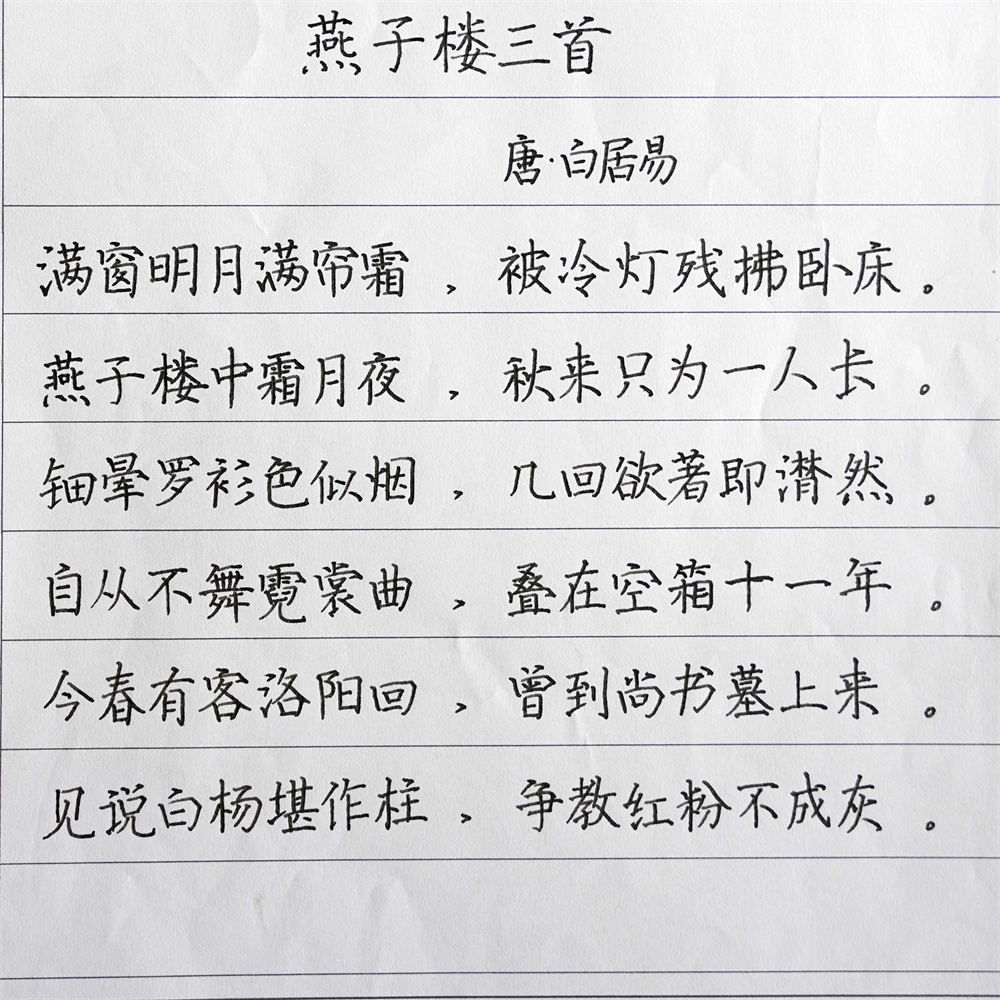 燕子楼三首
唐·白居易
满窗明月满帘霜，被冷灯残拂卧床。
燕子楼中霜月夜，秋来只为一人长。
钿晕罗衫色似烟，几回欲著即潸然。
自从不舞霓裳曲，叠在空箱十一年。
今春有客洛阳回，曾到尚书墓上来。
见说白杨堪作柱，争教红粉不成灰。